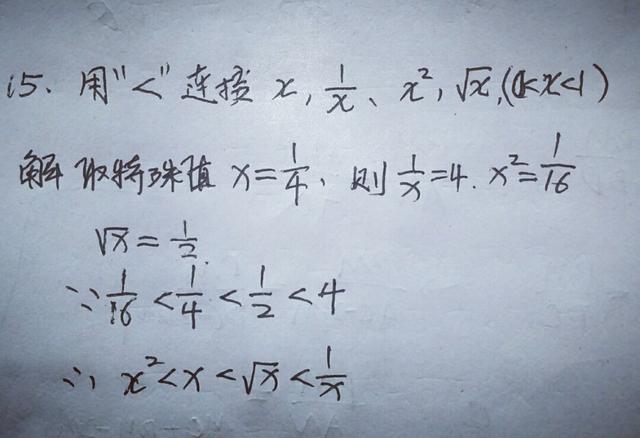 15、用"<"连接 x, 1/x、x², √x,(0<x<1)
解 取特殊值 x=1/4、则 1/x=4. x²=1/16
√x=1/2.
∵ 1/16 < 1/4 < 1/2 < 4
∴ x²<x<√x<1/x